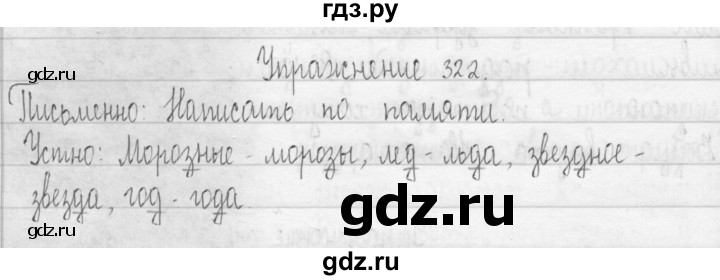 гдз.ру
gdz.ru
gdz.ru
Упражнение 322.
Письменно: Написать по памяти.
Устно: Морозные - морозы, лед - льда, звездное -
звезда, год - года
гдз.ру
gdz.ru
gdz.ru
gdz.ru